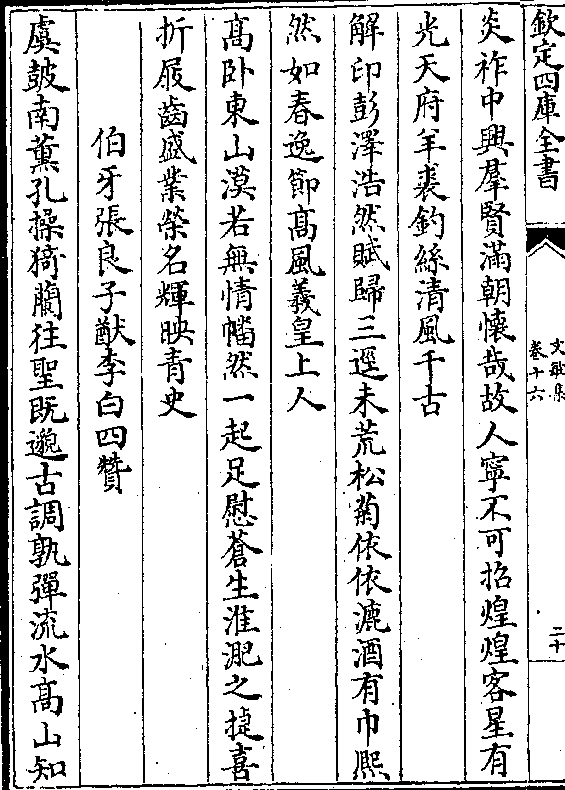 欽定四庫全書
文敏集
卷十六
二十
炎祚中興羣賢滿朝懷哉故人寧不可招煌煌客星有
光天府羊裘釣絲清風千古
解印彭澤浩然賦歸三逕未荒松菊依依漉酒有巾熙
然如春逸節高風義皇上人
高卧東山漠若無情幡然一起足慰蒼生淮淝之㨗喜
折屐齒盛業榮名輝映青史
伯牙張良子猷李白四贊
虞鼓南薰孔操猗蘭往聖既邈古調孰彈流水高山知